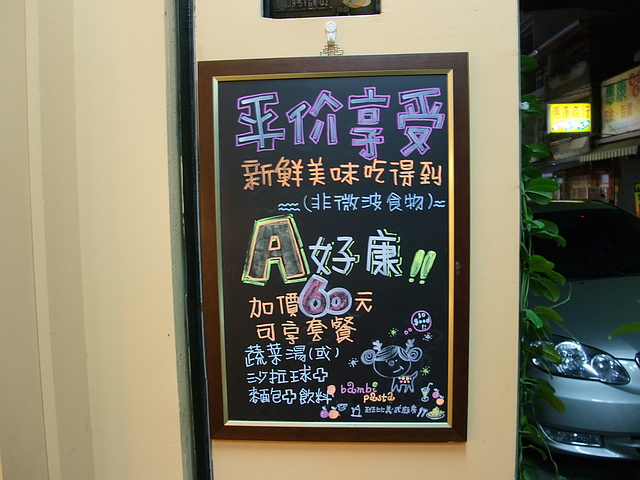 平价享受
新鮮美味吃得到
(非微波食物)
A好康!!
加價60元
可享套餐
蔬菜湯(或)
沙拉球+
麵包+飲料
so good
bambi
pasta